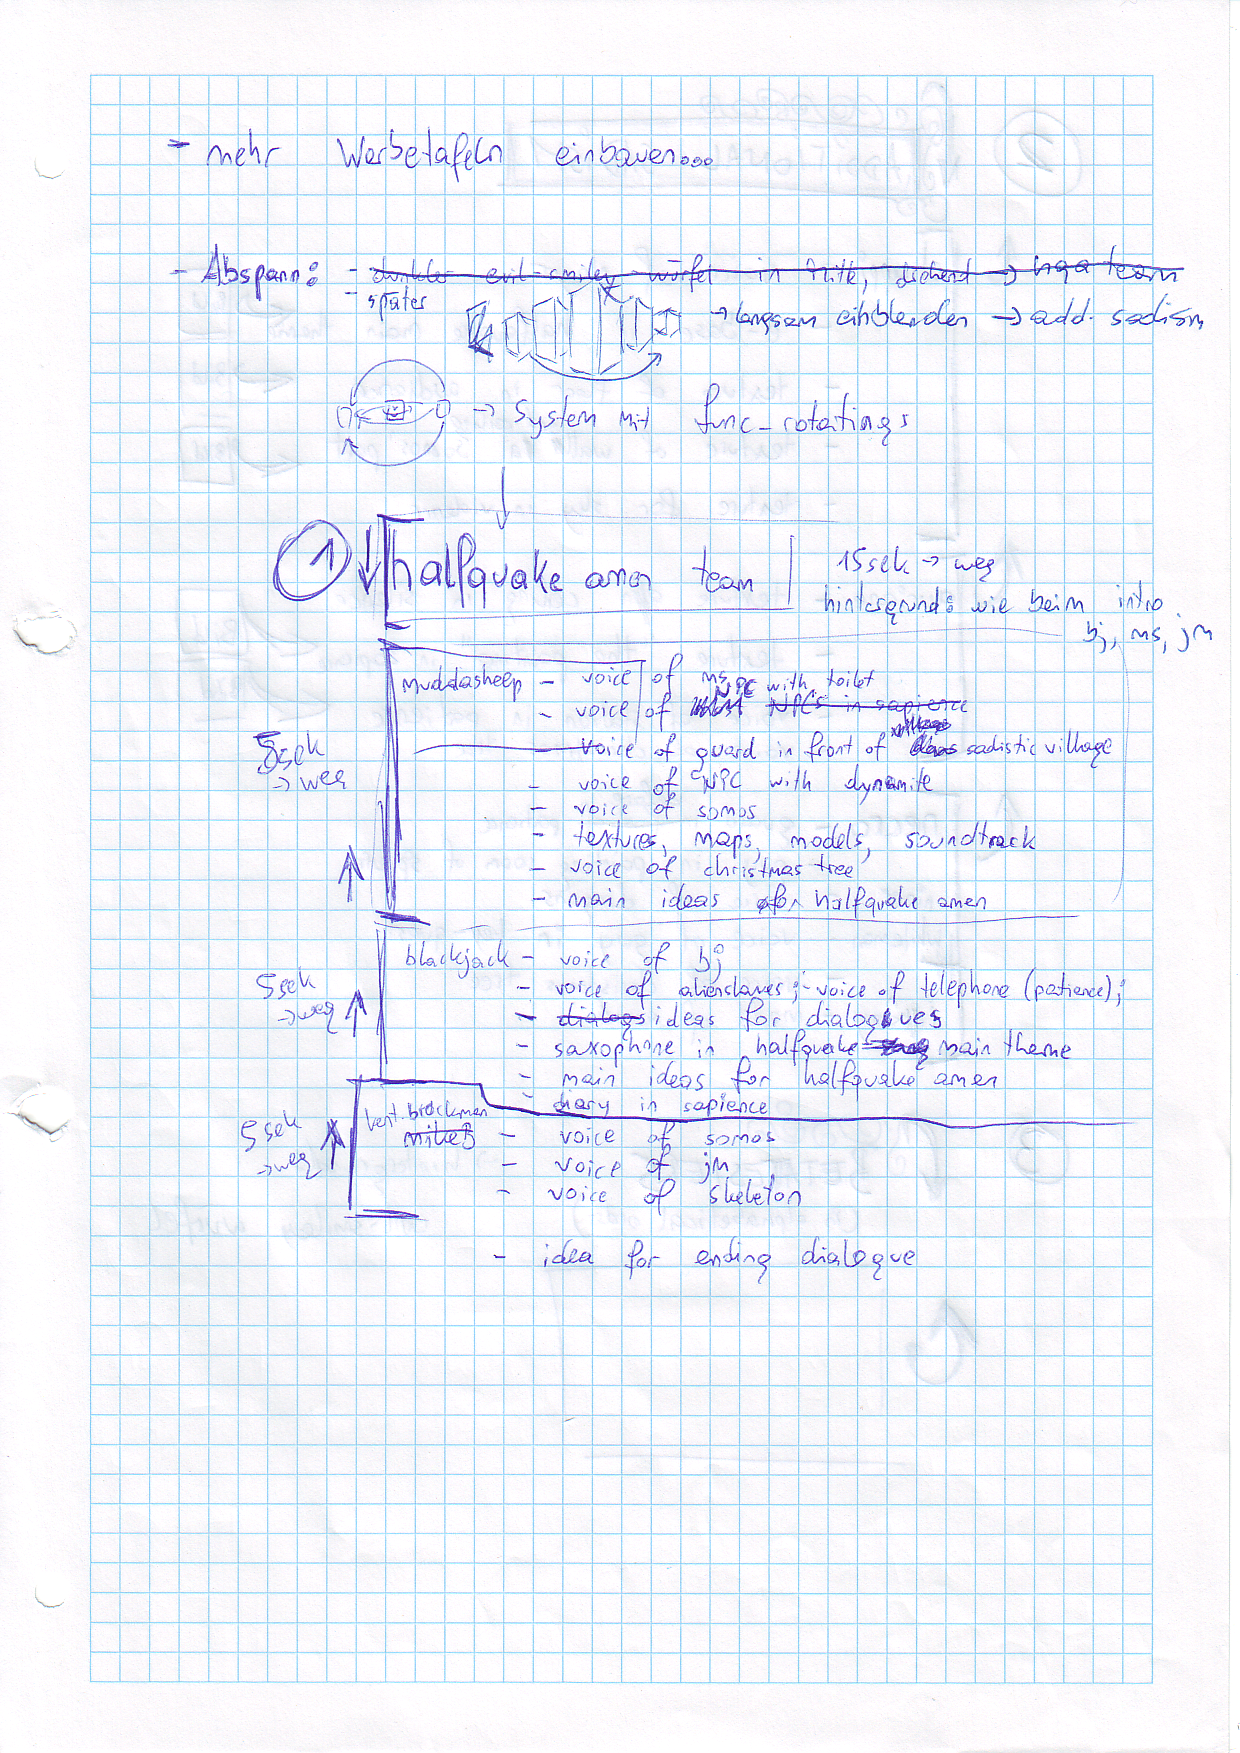 - mehr Werbetafeln einbauen...
- Abspann: - dunkler evil-smiley-würfel in mitte, drehend → hqa team
- später
→ langsam einblenden → add. sadism
→ System mit func_rotatings
① ↓ halfquake amen team
15sek → weg
hintergrund: wie beim intro
bj, ms, jm
muddasheep - voice of ms
- voice of NPC with toilet NPCs in sapience
- voice of guard in front of sadistic village
5sek → weg
- voice of NPC with dynamite
- voice of somos
- textures, maps, models, soundtrack
- voice of christmas tree
- main ideas for halfquake amen
blackjack - voice of bj
5sek → weg
- voice of alienslaves; - voice of telephone (patience);
- dialogs ideas for dialogues
- saxophone in halfquake main theme
- main ideas for halfquake amen
- diary in sapience
kent.brockman
5sek → weg
- voice of somos
- voice of jm
- voice of skeleton
- idea for ending dialogue